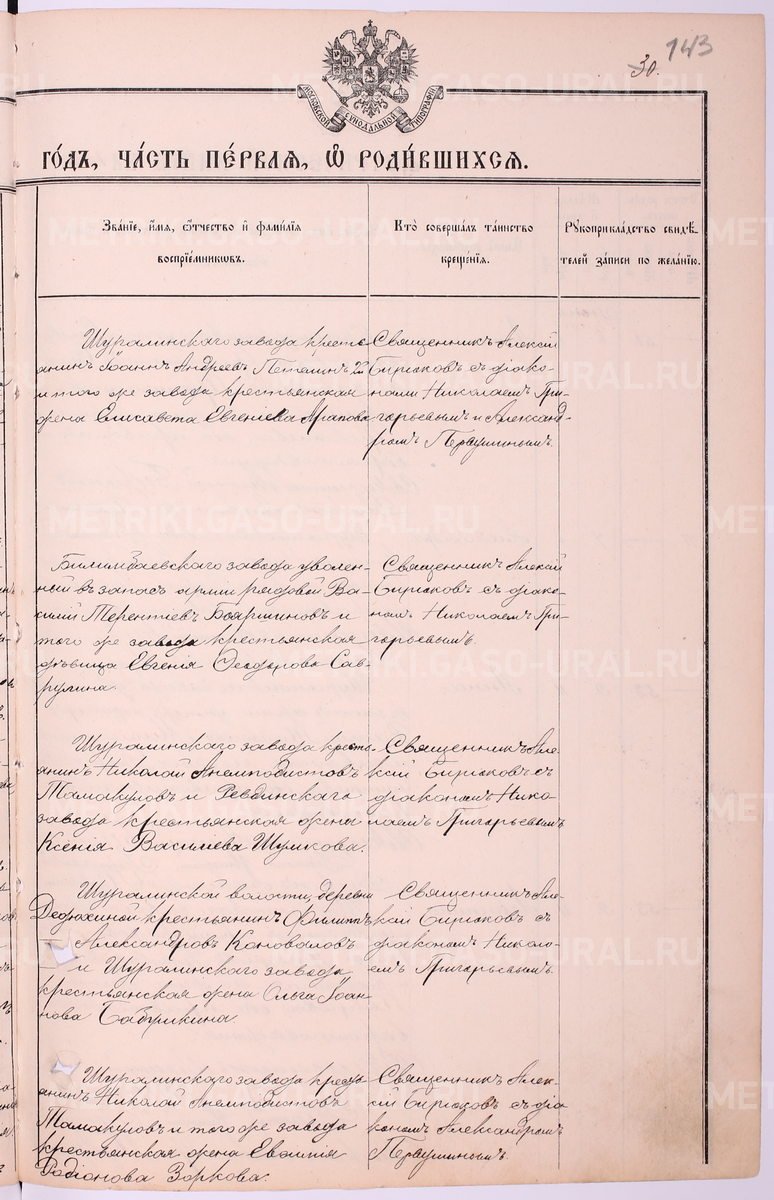 143
30.
МОСКОВСКОЙ СѴНОДАЛЬНОЙ ТИПОГРАФІИ
ГО́ДЪ, ЧА́СТЬ ПЕ́РВАЯ, Ѽ РОДИ́ВШИХСЯ.
Зва́нїе, и҆́мя, ѻ҆́тчество и҆ фами́лїя
воспрїе́мникѡвъ.
Кто̀ соверша́лъ та́инство
креще́нїя.
Рꙋкоприкла́дство свидѣ́-
телей за́писи по жела́нїю.
Шуралинскаго завода кресть-
янинъ Іоаннъ Андреевъ Петелинъ 2й
и того же завода крестьянская
жена Елисавета Евгеніева Арапова
Священникъ Алексій
Бирюковъ съ діако-
нами Николаемъ Гри-
горьевымъ и Александ-
ромъ Первушинымъ.
Билимбаевскаго завода уволен-
ный въ запасъ арміи рядовой Ва-
силій Терентіевъ Бояршиновъ и
того же завода крестьянская
дѣвица Евгенія Ѳеодорова Сав-
рулина.
Священникъ Алексій
Бирюковъ съ діако-
номъ Николаемъ Гри-
горьевымъ.
Шуралинскаго завода кресть-
янинъ Николай Анемподистовъ
Тамакуловъ и Ревдинскаго
завода крестьянская жена
Ксенія Василіева Шумкова.
Священникъ Але-
ксій Бирюковъ съ
діакономъ Нико-
лаемъ Григорьевымъ
Шуралинской волости, деревни
Дедюхиной крестьянинъ Филиппъ
Александровъ Коноваловъ
и Шуралинскаго завода,
крестьянская жена Ольга Іоан-
нова Бабушкина.
Священникъ Але-
ксій Бирюковъ съ
діакономъ Никола-
емъ Григорьевымъ.
Шуралинскаго завода кресть-
янинъ Николай Анемподистовъ
Тамакуловъ и того же завода
крестьянская жена Евѳимія
Родіонова Зоркова.
Священникъ Алек-
сій Бирюковъ съ діа-
кономъ Александромъ
Первушинымъ.
METRIKI.GASO-URAL.RU